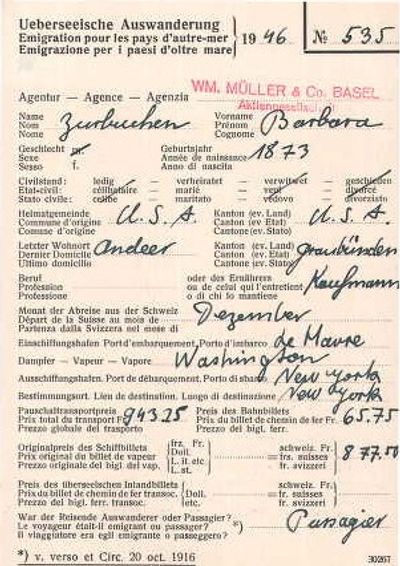 Ueberseeische Auswanderung
Emigration pour les pays d'autre-mer
Emigrazione per i paesi d'oltre mare
1946
№ 535
WM. MÜLLER & Co. BASEL
Aktiengesellschaft
Agentur — Agence — Agenzia
Name Zurbuchen Vorname Barbara
Nom Prénom
Nome Cognome
Geschlecht m. Geburtsjahr 1873
Sexe Année de naissance
Sesso f. Anno di nascita
Civilstand: ledig — verheiratet — verwitwet — geschieden
Etat-civil: célibataire — marié — veuf — divorcé
Stato civile: celibe — maritato — vedovo — divorziato
Heimatgemeinde U.S.A. Kanton (ev. Land) U.S.A.
Commune d'origine Canton (ev. Etat)
Comune d'origine Cantone (ev. Stato)
Letzter Wohnort Andeer Kanton (ev. Land) Graubünden
Dernier Domicile Canton (ev. Etat)
Ultimo domicilio Cantone (ev. Stato)
Beruf oder des Ernährers Kaufmann
Profession ou de celui qui l'entretient
Professione o di chi lo mantiene
Monat der Abreise aus der Schweiz Dezember
Départ de la Suisse au mois de
Partenza dalla Svizzera nel mese di
Einschiffungshafen Port d'embarquement Porto d'imbarco Le Havre
Dampfer — Vapeur — Vapore Washington
Ausschiffungshafen. Port de débarquement. Porto di sbarco New York
Bestimmungsort. Lieu de destination. Luogo di destinazione New York
Pauschaltransportpreis 943.25 Preis des Bahnbillets 65.75
Prix total du transport Fr. Prix du billet de chemin de fer Fr.
Prezzo globale del trasporto Prezzo del bigl. ferr.
Originalpreis des Schiffbillets frz. Fr. schweiz. Fr. 877.50
Prix original du billet de vapeur Doll. = frs. suisses
Prezzo originale del bigl. del vap. L. it. etc. fr. svizzeri
L. st.
Preis des überseeischen Inlandbillets schweiz. Fr.
Prix du billet de chemin de fer transoc. Doll. = frs. suisses
Prezzo del bigl. ferr. transoc. etc. fr. svizzeri
War der Reisende Auswanderer oder Passagier? Passagier
Le voyageur était-il émigrant ou passager? *)
Il viaggiatore era egli emigrante o passeggero?
*) v. verso et Circ. 20 oct. 1916
30267